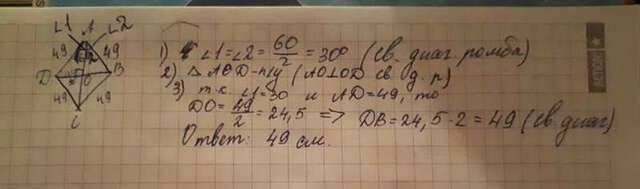 ∠1 ∠2
A
49 49
D O B
49 49
C
1) ∠1=∠2 = 60/2 = 30° (св. диаг. ромба)
2) △ AOD - п/у (AO⊥OD св. д. р)
3) т.к. ∠1=30 и AD=49, то
DO = 49/2 = 24,5 => DB = 24,5 · 2 = 49 (св. диаг)
Ответ: 49 см.